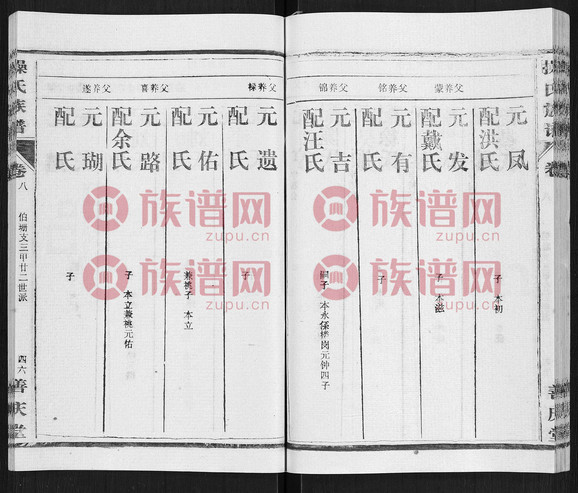 元凤
配洪氏
子 本初
父养蒙
元发
配戴氏
子 本滋
父养铭
元有
配 氏
子
父养锦
元吉
配汪氏
嗣子 本永系楼岗元钟四子
父养禄
元遗
配 氏
子
元佑
配 氏
兼祧子 本立
父养喜
元路
配余氏
子 本立兼祧元佑
父养邃
元瑚
配 氏
子
操氏族谱
卷八
伯珊支三甲廿二世派
四六
善庆堂
族谱网
zupu.cn
族谱网
zupu.cn
族谱网
zupu.cn
族谱网
zupu.cn